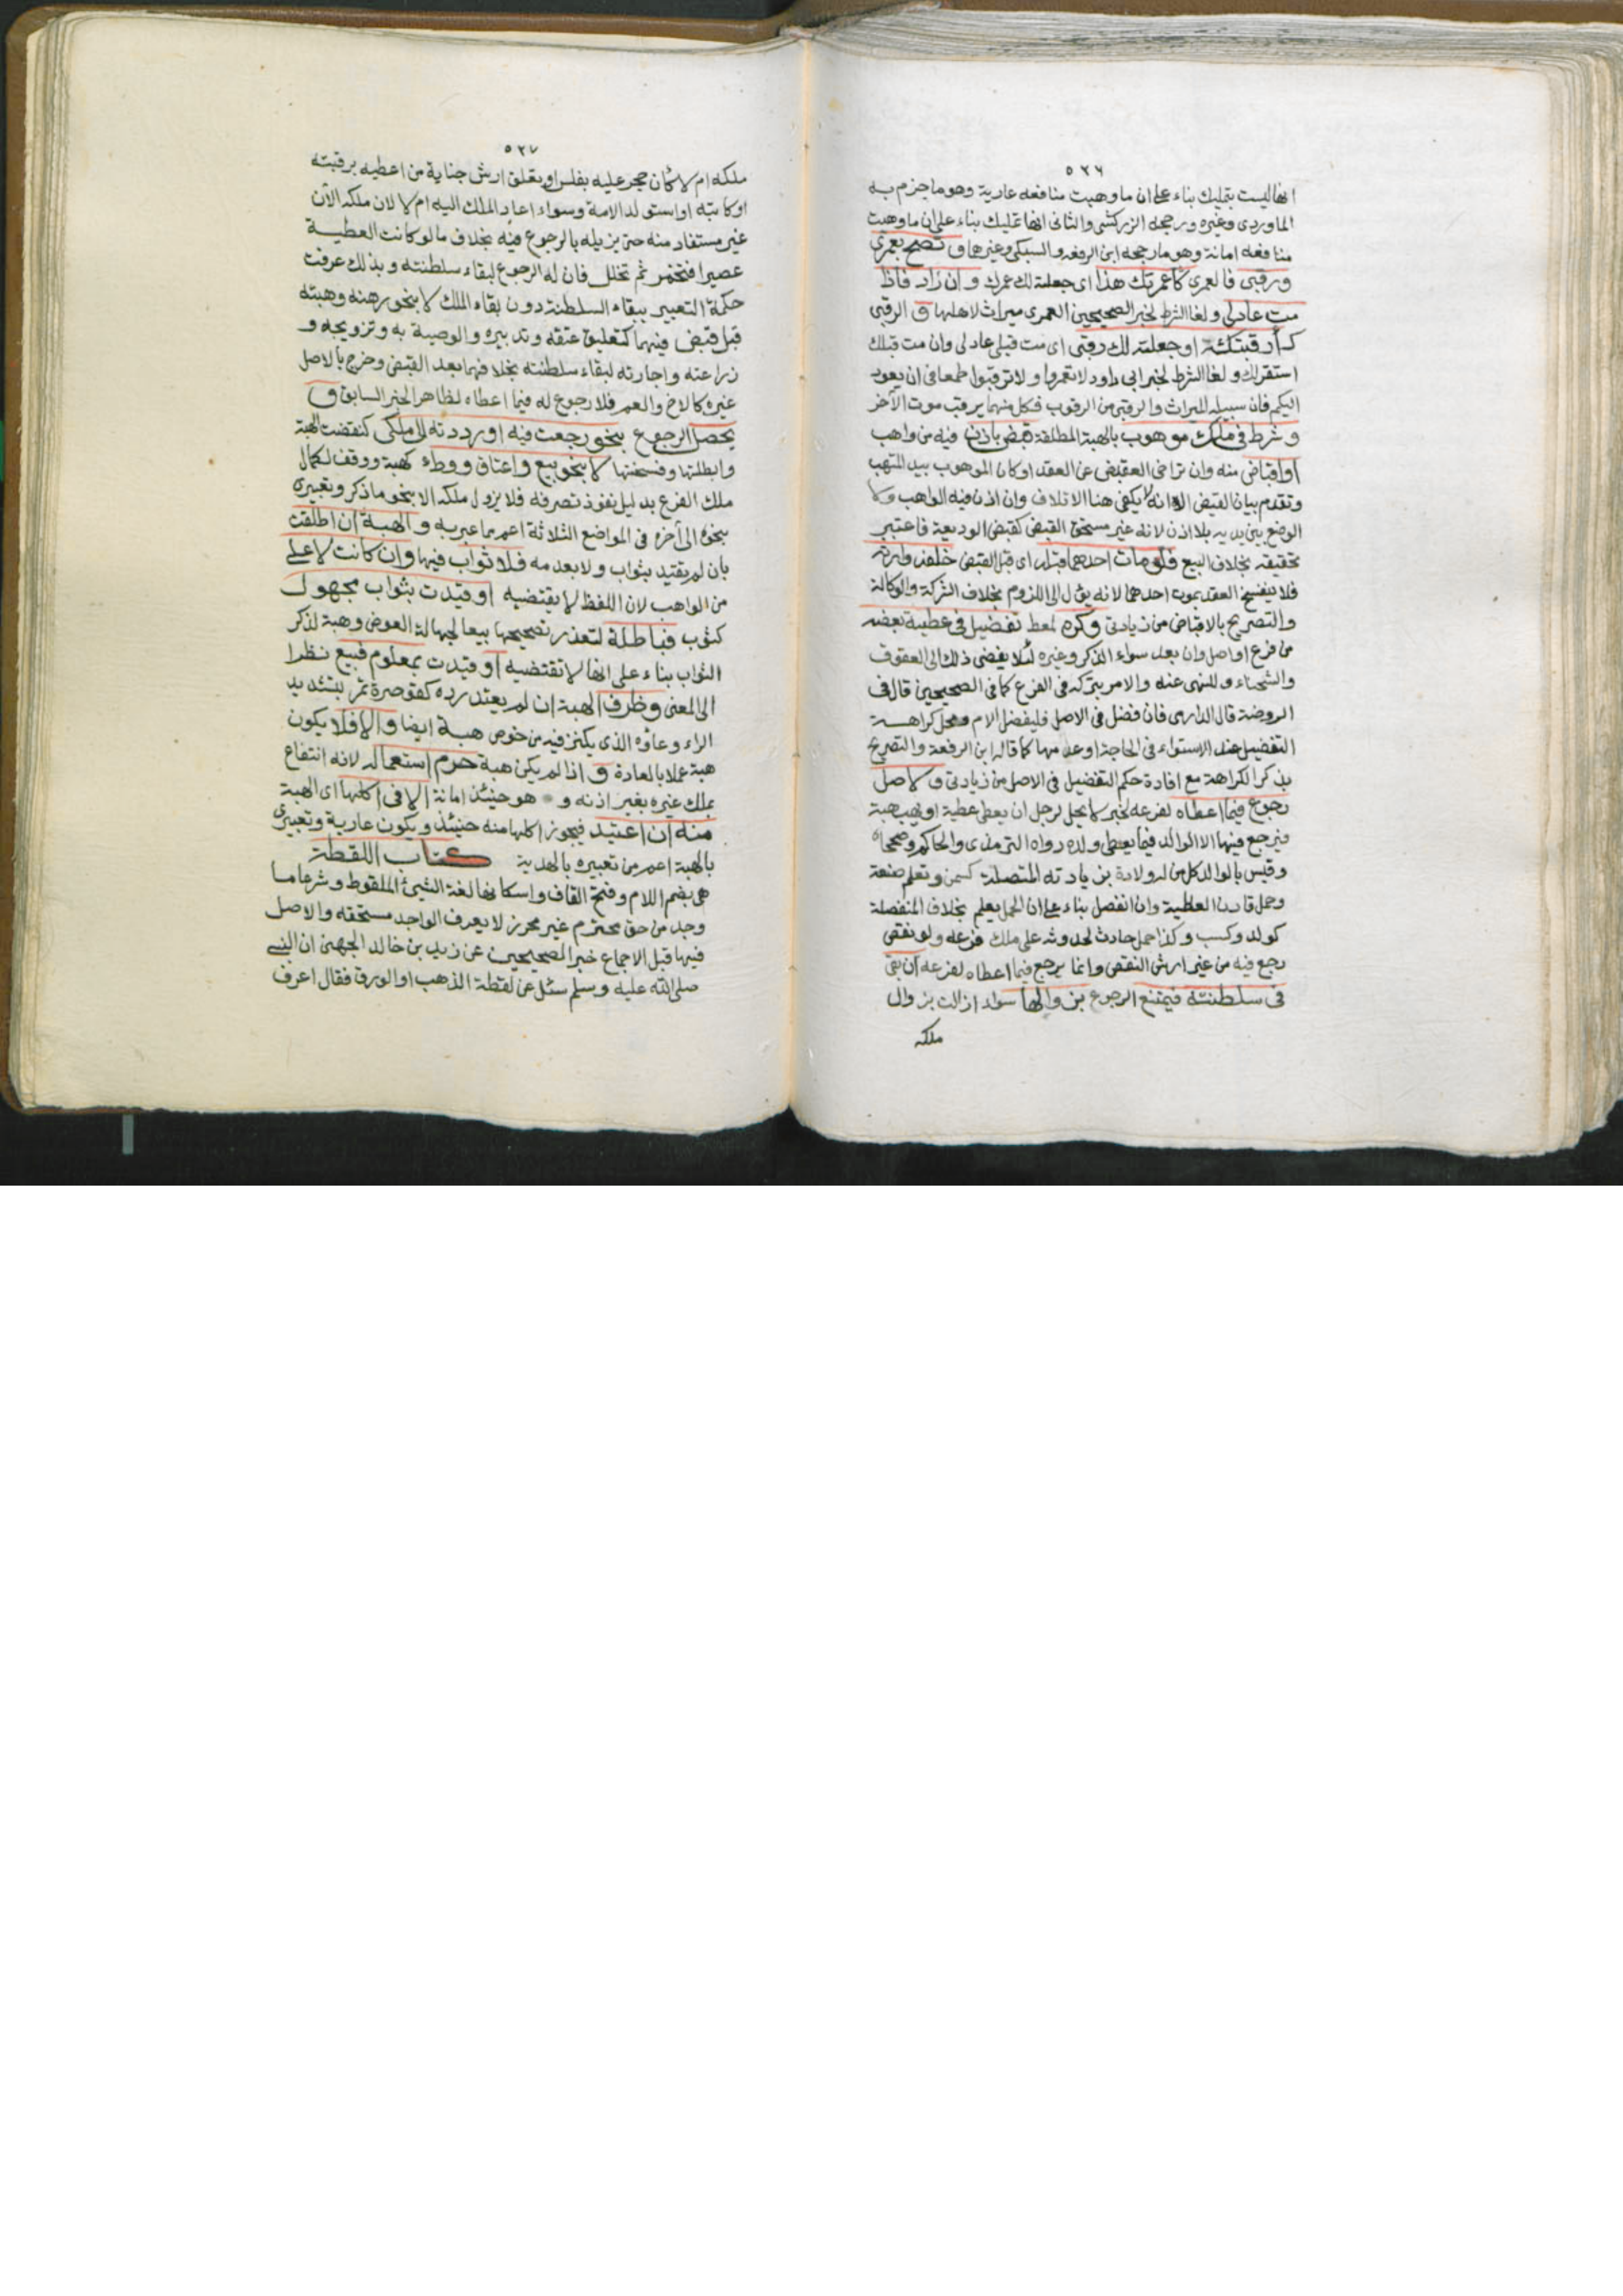 ٥٢٦
انها ليست بتمليك بناء على ان ما وهبت منافعه عارية وهو ما جزم به
الماوردى وغيره ورجحه الزركشى والثانى انها تمليك بناء على ان ما وهبت
منافعه امانة وهو ما رجحه ابن الرفعة والسبكى وغيرهما و تصح بعمرى
ورقبى فالعمرى كاعمرتك هذا اى جعلته لك عمرك وان زاد فاذا
مت عاد لى ولغا الشرط لخبر الصحيحين العمرى ميراث لاهلها و الرقبى
كـأرقبتكه او جعلته لك رقبى اى مت قبلى عاد لى وان مت قبلك
استقر لك ولغا الشرط لخبر ابى داود لا تعمروا ولا ترقبوا طمعا فى ان يعود
اليكم فان سبيله الميراث والرقبى من الرقوب فكل منهما يرقب موت الآخر
وشرط فى ملك موهوب بالهبة المطلقة قبض باذن فيه من واهب
او اقباض منه وان تراخى القبض عن العقد او كان الموهوب بيد المتهب
وتقدم بيان القبض الا انه لا يكفى هنا الاتلاف وان اذن فيه الواهب ولا
الوضع بين يديه بلا اذن لانه غير مستحق القبض كقبض الوديعة فاعتبر
تحقيقه بخلاف البيع فلو مات احدهما قبله اى قبل القبض خلفه وارثه
فلا ينفسخ العقد بموت احدهما لانه يؤل الى اللزوم بخلاف الشركة والوكالة
والتصريح بالاقباض من زيادتى وكره لمعط تفضيل فى عطية بعضه
من فرع او اصل وان بعد سواء الذكر وغيره لئلا يفضى ذلك الى العقوق
والشحناء وللنهى عنه والامر بتركه فى الفرع كما فى الصحيحين قال فى
الروضة قال الدارمى فان فضل فى الاصل فليفضل الام ومحل كراهـة
التفضيل عند الاستواء فى الحاجة او عدمها كما قاله ابن الرفعة والتصريح
بذكر الكراهة مع افادة حكم التفضيل فى الاصل من زيادتى و لاصل
رجوع فيما اعطاه لفرعه لخبر لا يحل لرجل ان يعطى عطية او يهب هبة
فيرجع فيها الا الوالد فيما يعطى ولده رواه الترمذى والحاكم وصححاه
وقيس بالوالد كل من له ولادة بزيادته المتصلة كسمن وتعلم صنعة
وحمل قارن العطية وان انفصل بناء على ان الحمل يعلم بخلاف المنفصلة
كولد وكسب وكذا حمل حادث لحدوثه على ملك فرعه ولو نقص
رجع فيه من غير ارش النقص وانما يرجع فيما اعطاه لفرعه ان بقى
فى سلطنته فيمتنع الرجوع بزوالها سواء ازالت بزوال
ملكه
٥٢٧
ملكه ام لا كأن حجر عليه بفلس او تعلق ارش جناية من اعطيه برقبته
او كاتبه او استولد الامة وسواء اعاد الملك اليه ام لا لان ملكه الآن
غير مستفاد منه حتى يزيله بالرجوع فيه بخلاف ما لو كانت العطيـة
عصيرا فتخمر ثم تخلل فان له الرجوع لبقاء سلطنته وبذلك عرفت
حكمة التعبير ببقاء السلطنة دون بقاء الملك لا بنحو رهنه وهبته
قبل قبض فيهما كتعليق عتقه وتدبيره والوصية به وتزويجه و
زراعته واجارته لبقاء سلطنته بخلافهما بعد القبض وخرج بالاصل
غيره كالاخ والعم فلا رجوع له فيما اعطاه لظاهر الخبر السابق و
يحصل الرجوع بنحو رجعت فيه او رددته الى ملكى كنقضت الهبة
وابطلتها وفسختها لا بنحو بيع واعتاق ووطء كهبة ووقف لكمال
ملك الفرع بدليل نفوذ تصرفه فلا يزول ملكه الا بنحو ما ذكر وتعبيرى
بنحو الى آخره فى المواضع الثلاثة اعم مما عبر به و الهبة ان اطلقت
بان لم يقيد بثواب ولا بعدمه فلا ثواب فيها وان كانت لاعلى
من الواهب لان اللفظ لا يقتضيه او قيدت بثواب مجهول
كثوب فباطلة لتعذر تصحيحها بيعا لجهالة العوض وهبة لذكر
الثواب بناء على انها لا تقتضيه او قيدت بمعلوم فبيع نظرا
الى المعنى وظرف الهبة ان لم يعتد رده كقوصرة تمر بتشديد
الراء وعاؤه الذى يكنز فيه من خوص هبـة ايضا والا فلا يكون
هبة عملا بالعادة و اذا لم يكن هبة حرم استعماله لانه انتفاع
بملك غيره بغير اذنه و هو حينئذ امانة الا فى اكلها اى الهبة
منه ان اعتيد فيجوز اكلها منه حينئذ ويكون عارية وتعبيرى
بالهبة اعم من تعبيره بالهدية كتاب اللقطة
هى بضم اللام وفتح القاف واسكانها لغة الشئ الملقوط وشرعا ما
وجد من حق محترم غير محرز لا يعرف الواجد مستحقه والاصل
فيها قبل الاجماع خبر الصحيحين عن زيد بن خالد الجهنى ان النبى
صلى الله عليه وسلم سئل عن لقطة الذهب او الورق فقال اعرف